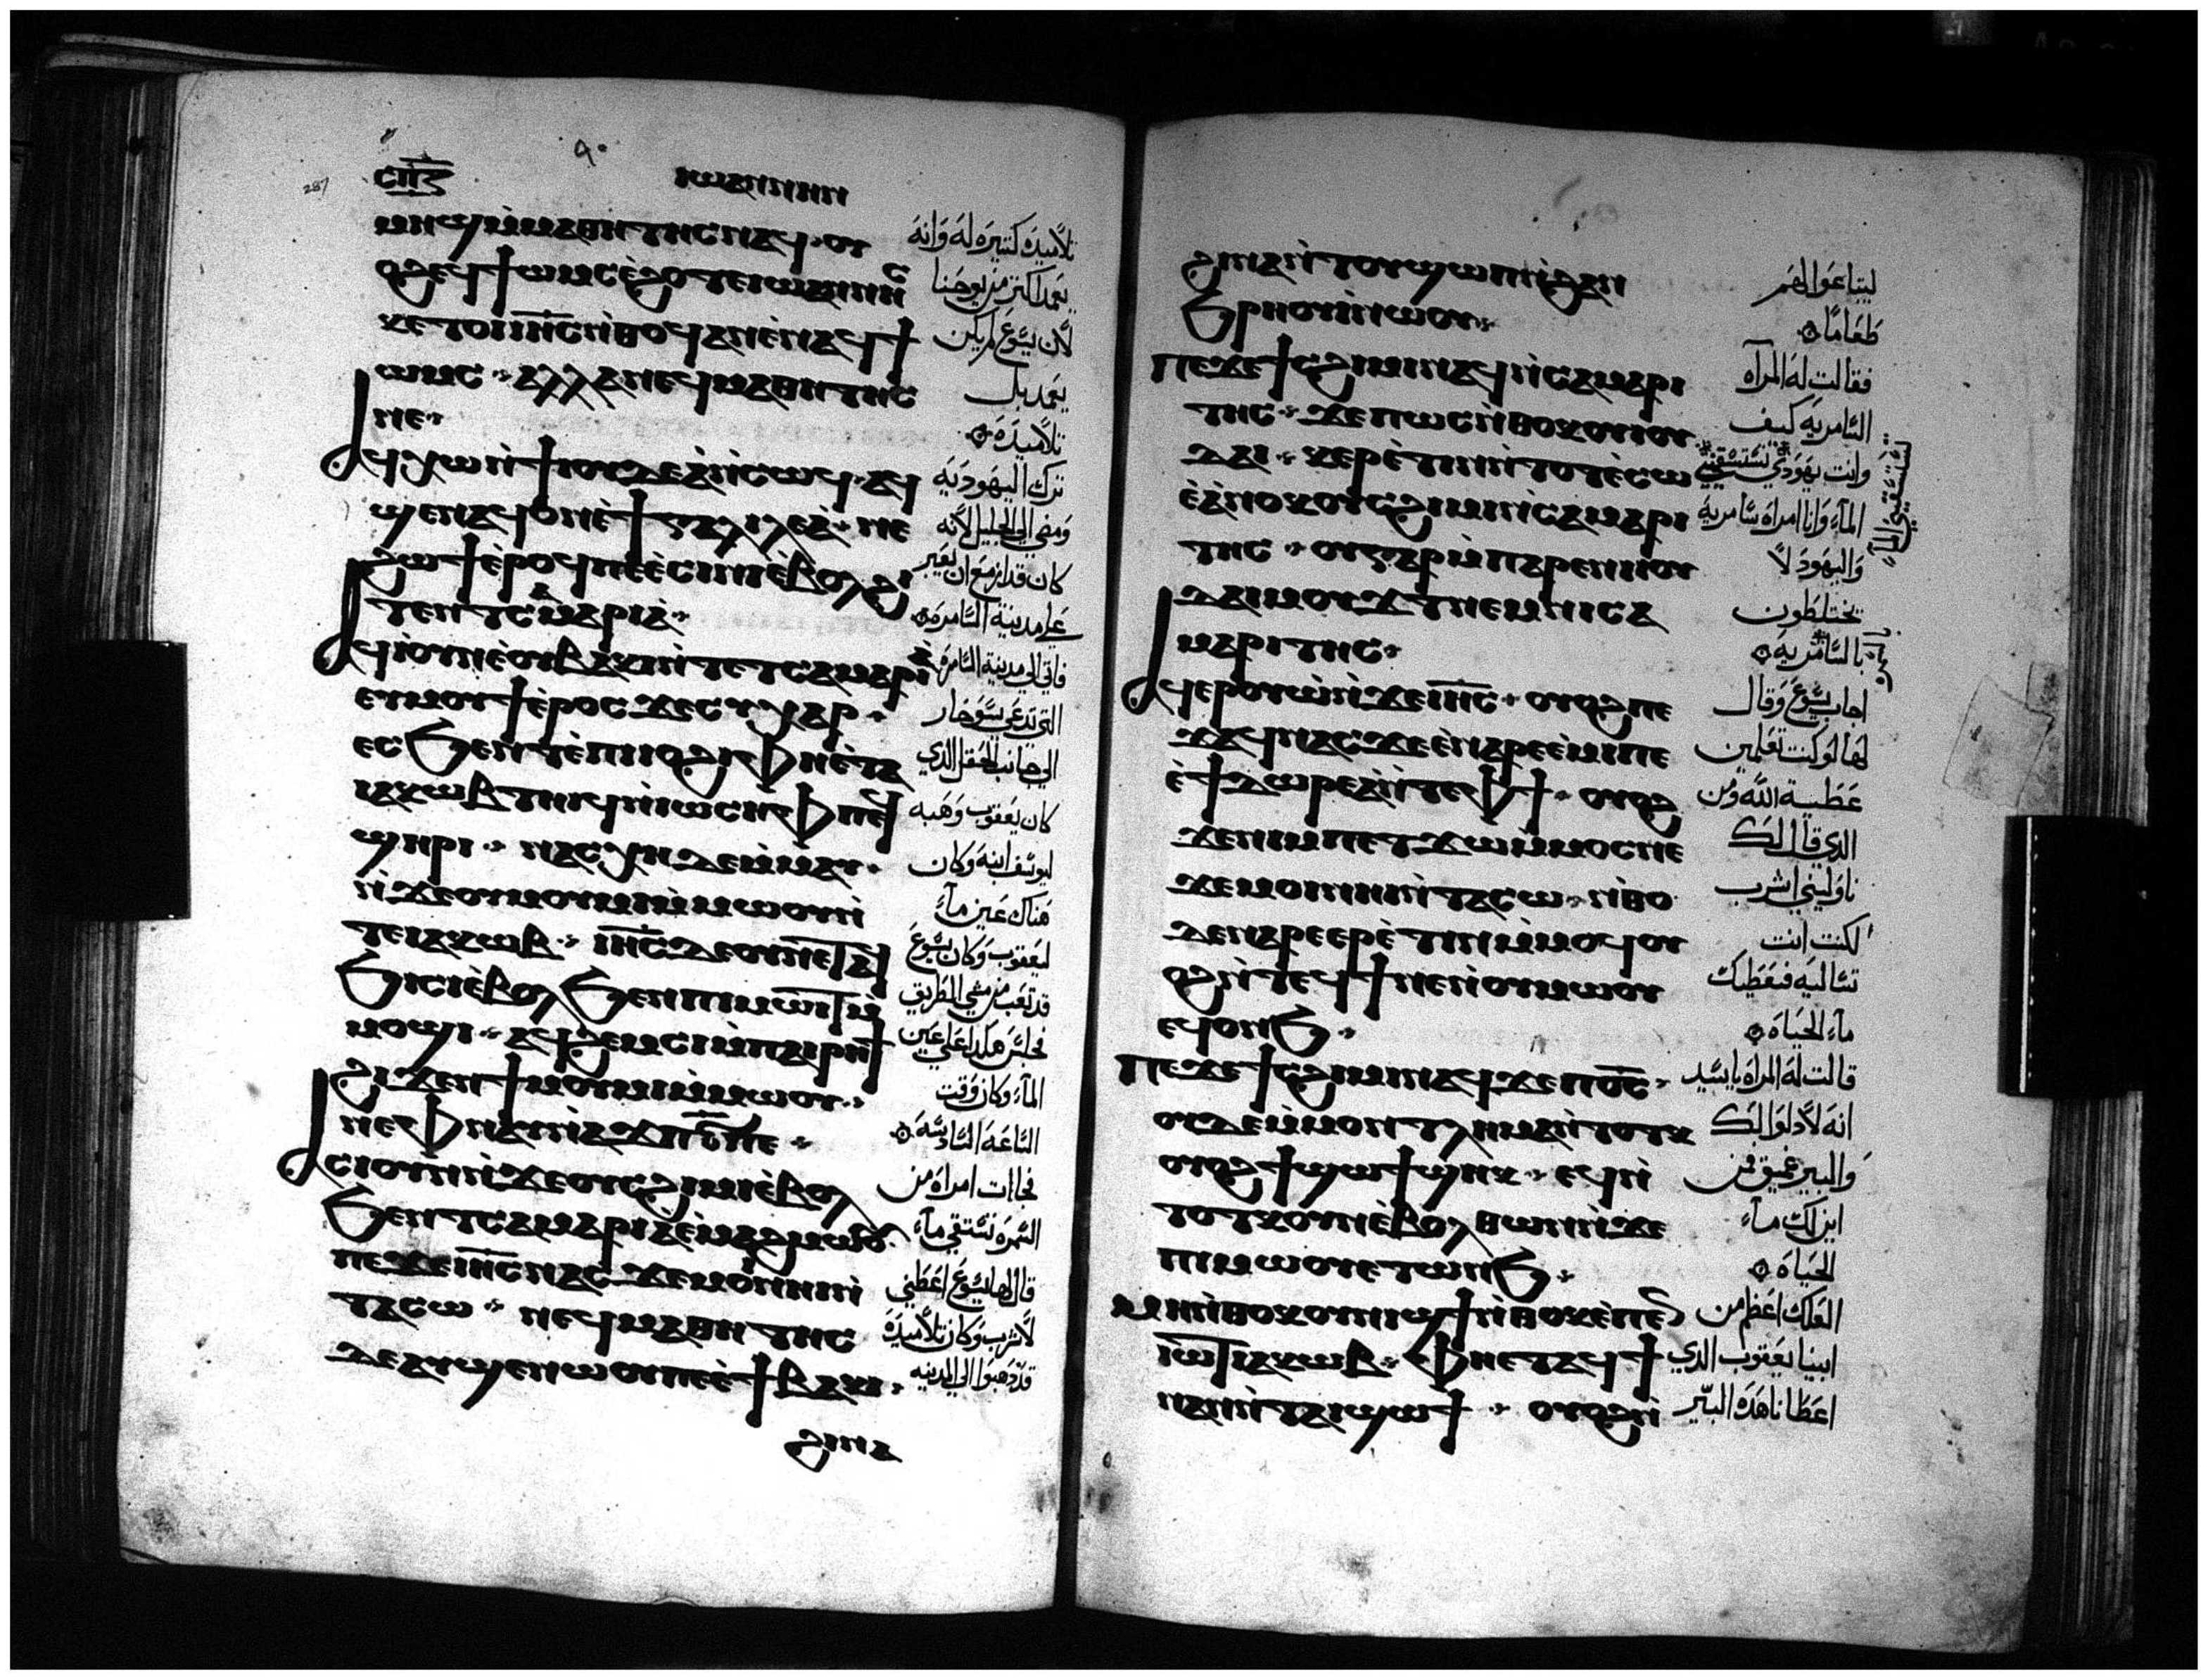 ⲥⲡⲍ ⲓⲱⲁⲛⲛⲏⲛ
ⲙⲏϣ ⲙ̀ⲙⲁⲑⲏⲧⲏⲥ ⲛⲁϥ · ⲟⲩ تلاميذه كتيره له وانه
ⲟϩ ⲉϥϯⲱⲙⲥ ⲉ̀ϩⲟⲧⲉ ⲓⲱⲁⲛⲛⲏⲥ يعمد اكتر من يوحنا
ⲕⲉⲧⲟⲓ ⲓⲏⲥ ⲛ̀ⲑⲟϥ ⲁⲛ ⲉ̀ⲛⲁϥϯ لان يسوع لم يكن
ⲱⲙⲥ · ⲁⲗⲗⲁ ⲛⲉϥⲙⲁⲑⲏⲧⲏⲥ يعمد بل
ⲛⲉ · تلاميذه
ⲁϥⲭⲱ ⲛ̀ϯⲓⲟⲩⲇⲉⲁ̀ ⲛ̀ⲥⲱϥ · ⲁϥ ترك اليهوديه
ϣⲉⲛⲁϥ ⲟⲛ ⲉ̀ϯⲅⲁⲗⲓⲗⲉⲁ̀ · ⲛⲉ ومضي الي الجليل لانه
ϩⲱϯ ⲉ̀ⲣⲟϥ ⲡⲉ ⲉ̀ⲥⲓⲛⲓ ⲉ̀ⲃⲟⲗ ϩⲓ كان قد ازمع ان يعبر
ⲧⲉⲛ ⲧⲥⲁⲙⲁⲣⲓⲁ̀ · علي مدينة السامره
ⲁϥⲓ̀ ⲟⲩⲛ ⲉ̀ⲟⲩⲃⲁⲕⲓ ⲛ̀ⲧⲉ ⲧⲥⲁⲙⲁⲣⲓⲁ̀ فاتي الي مدينة السامره
ⲉⲩⲙⲟⲩϯ ⲉ̀ⲣⲟⲥ ϫⲉ ⲥⲩⲭⲁⲣ · التي تدعي سوخار
ⲉⲥϧⲉⲛⲧ ⲉ̀ⲡⲓⲓⲟϩⲓ ⲫⲏ ⲉ̀ⲧⲁ الي جانب الحقل الذي
ⲓⲁⲕⲱⲃ ⲧⲏⲓϥ ⲛ̀ⲓⲱⲥⲏⲫ ⲡⲉϥ كان يعقوب وهبه
ϣⲏⲣⲓ · ⲛⲁⲥⲭⲏ ⲇⲉ ⲙ̀ⲙⲁⲩ · ليوسف ابنه وكان
ⲛ̀ϫⲉ ⲟⲩⲙⲟⲩⲙⲓ ⲙ̀ⲙⲱⲟⲩ ⲛ̀ هناك عين ماء
ⲧⲉ ⲓⲁⲕⲱⲃ · ⲓⲏⲥ ⲇⲉ ⲟⲩⲛ ⲉ̀ⲧⲁϥ ليعقوب وكان يسوع
ϧⲓⲥⲓ ⲉ̀ⲃⲟⲗ ϧⲉⲛ ⲡⲓⲙⲱⲓⲧ ⲙ̀ قد تعب من مشي الطريق
ⲙⲟϣⲓ · ⲁϥϩⲉⲙⲥⲓ ⲙ̀ⲡⲁⲓⲣⲏϯ فجلس هكذا علي عين
ϩⲓϫⲉⲛ ϯⲙⲟⲩⲙⲓ ⲙ̀ⲙⲱⲟⲩ · الماء وكان وقت
ⲛⲉ ⲫⲛⲁⲩ ⲛ̀ⲁϫⲡ ⲋ ⲡⲉ · الساعه السادسه
ⲁⲥⲓ ⲟⲩⲛ ⲛ̀ϫⲉ ⲟⲩⲥϩⲓⲙⲓ ⲉ̀ⲃⲟⲗ فجاات امراه من
ϧⲉⲛ ⲧⲥⲁⲙⲁⲣⲓⲁ ⲉ̀ⲙⲁϩ ⲙⲱⲟⲩ · السمره تستقي ماء
ⲡⲉϫⲉ ⲓⲏⲥ ⲛⲁⲥ ϫⲉ ⲙⲟⲓ ⲛⲏⲓ ⲛ̀ قال لها يسوع اعطني
ⲧⲁⲥⲱ · ⲛⲉϥⲙⲁⲑⲏⲧⲏⲥ لاشرب وكان تلاميذه
ⲇⲉ ⲁⲩϣⲉⲛⲱⲟⲩ ⲡⲉ ⲉ̀ϯⲃⲁⲕⲓ · قد ذهبوا الي المدينه
ϩⲓⲛⲁ
ϩⲓⲛⲁ ⲛ̀ⲧⲟⲩϣⲱⲡ ⲛ̀ϩⲁⲛ ليبتاعوا لهم
ϧⲣⲏⲟⲩⲓ̀ ⲛⲱⲟⲩ · طعاما
ⲡⲉϫⲉ ϯⲥϩⲓⲙⲓ ⲛⲁϥ ⲛ̀ⲥⲁⲙⲁⲣⲓ فقالت له المرآه
ⲧⲏⲥ · ϫⲉ ⲡⲱⲥ ⲛ̀ⲑⲟⲕ ⲟⲩⲓⲟⲩ السامريه كيف
ⲇⲁⲓ · ⲕⲉⲣⲉ̀ⲧⲓⲛ ⲛ̀ⲧⲟⲧ ⲉ̀ⲥⲱ وانت يهودي تستسقيني
ⲉ̀ⲁ̀ⲛⲟⲕ ⲟⲩⲥϩⲓⲙⲓ ⲛ̀ⲥⲁⲙⲁⲣⲓ الماء وانا امراه سامريه
ⲧⲏⲥ · ⲟⲩ ⲅⲁⲣ ⲙ̀ⲡⲁⲣⲉ ⲛⲓⲓⲟⲩ واليهود لا
ⲇⲁⲓ ⲙⲟⲩϫⲧ ⲛⲉⲙ ⲛⲓⲥⲁ يختلطون
ⲙⲁⲣⲓⲧⲏⲥ · بالسامريه
ⲁϥⲉⲣⲟⲩⲱ̀ ⲛ̀ϫⲉ ⲓⲏⲥ · ⲟⲩⲟϩ ⲡⲉ اجاب يسوع وقال
ϫⲁϥ ⲛⲁⲥ ϫⲉ ⲉ̀ⲛⲁⲣⲉⲉ̀ⲙⲓ ⲡⲉ لها لو كنت تعلمين
ⲉ̀ϯⲇⲱⲣⲉⲁ̀ ⲛ̀ⲧⲉ ⲫϯ · ⲟⲩⲟϩ عطية الله ومن
ϫⲉ ⲛⲓⲙ ⲡⲉⲧϫⲱ ⲙ̀ⲙⲟⲥ ⲛⲉ الذي قال لك
ϫⲉ ⲙⲟⲓ ⲛⲏⲓ ⲛ̀ⲧⲁⲥⲱ · ⲛ̀ⲑⲟ ناوليني اشرب
ⲇⲉ ⲛⲁⲣⲉⲉⲣⲉ̀ⲧⲓⲛ ⲙ̀ⲙⲟϥ ⲟⲩ لكنت انت
ⲟϩ ⲛ̀ⲧⲉϥϯ ⲛⲉ ⲛ̀ⲟⲩⲙⲱⲟⲩ تساليه فيعطيك
ⲉϥⲟⲛϧ · ماء الحياه
ⲡⲉϫⲉ ϯⲥϩⲓⲙⲓ ⲛⲁϥ ϫⲉ ⲡⲟⲥ · قالت له المراه ياسيد
ⲟⲩⲇⲉ ⲙ̀ⲙⲟⲛ ⲧⲗⲏⲙⲁ ⲛ̀ⲧⲟⲧⲕ انه لا دلو لك
ⲟⲩⲟϩ ϯϣⲱϯ ϣⲏⲕ · ⲉϥⲛ̀ والبير عميق فمن
ⲧⲟⲧⲕ ⲟⲩⲛ ⲉ̀ⲃⲟⲗ ⲑⲱⲛ ⲛ̀ϫⲉ اين لك ماء
ⲡⲓⲙⲱⲟⲩ ⲉⲧⲱⲛϧ · الحياه
ⲙⲏ ⲛ̀ⲑⲟⲕ ⲟⲩⲛⲓϣϯ ⲛ̀ⲑⲟⲕ ⲉ̀ⲡⲉⲛ العلك اعظم من
ⲓⲱⲧ ⲓⲁⲕⲱⲃ · ⲫⲏ ⲉⲧⲁϥϯ ابينا يعقوب الذي
ⲛⲁⲛ ⲛ̀ⲧⲁⲓϣⲱϯ · ⲟⲩⲟϩ ⲛ̀ اعطانا هذه البير